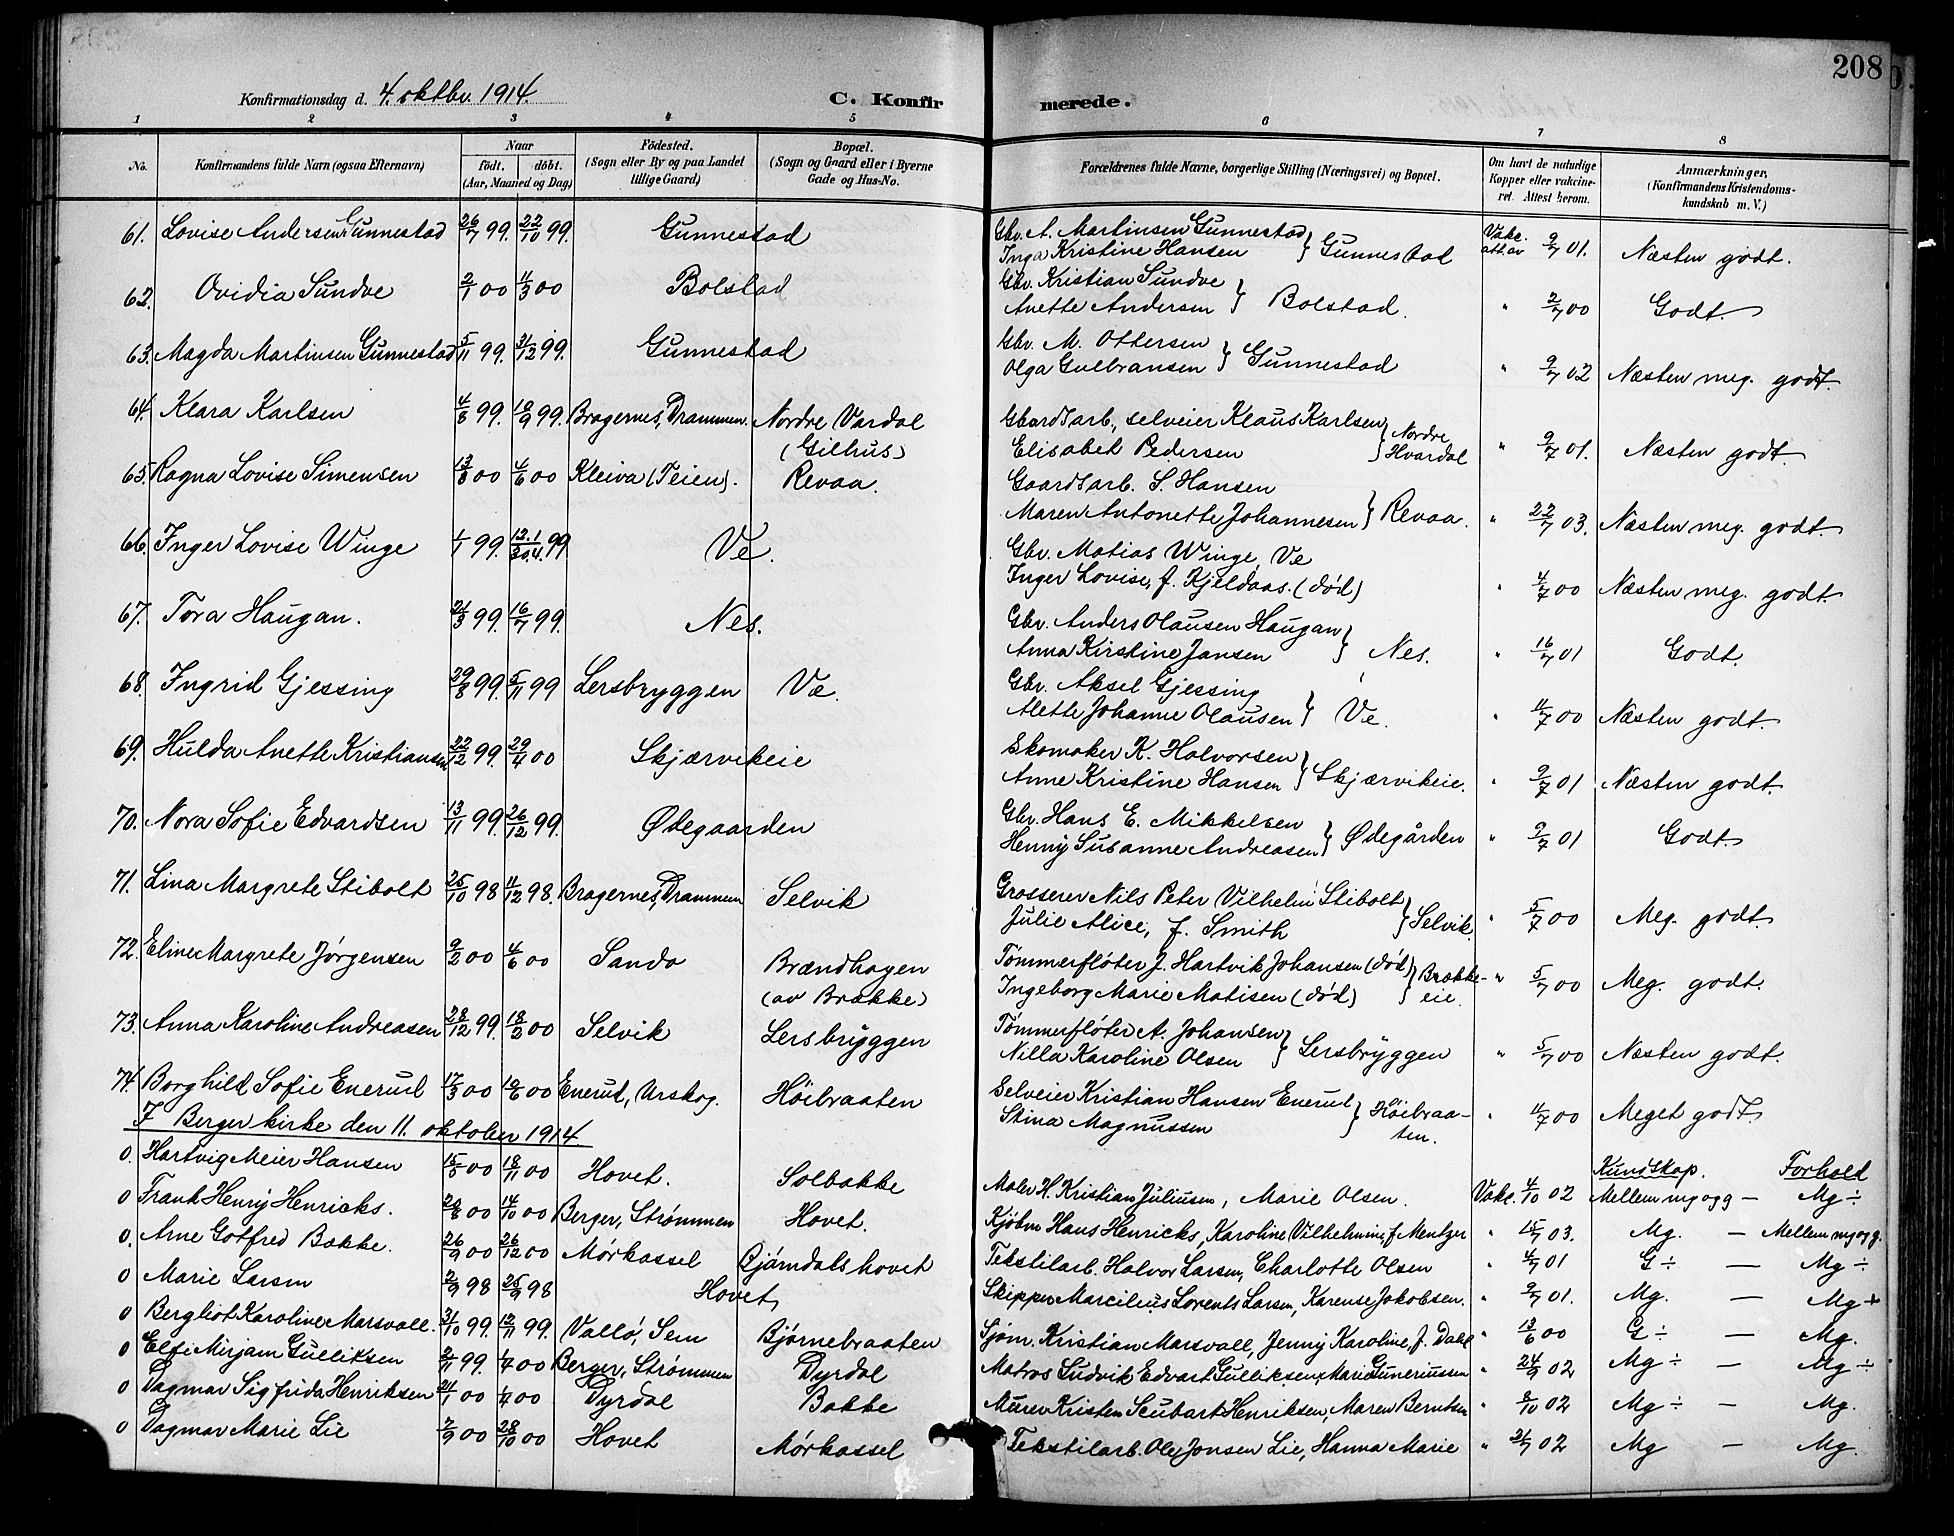 208
Konfirmationsdag d. 4. oktbr. 1914.
C. Konfirmerede.
1 2 3 4 5 6 7 8
No. Konfirmandens fulde Navn (ogsaa Efternavn) Naar Födt. döbt. (Aar, Maaned og Dag) Födested. (Sogn eller By og paa Landet tillige Gaard) Bopæl. (Sogn og Gaard eller i Byerne Gade og Hus-No. Forældrenes fulde Navne, borgerlige Stilling (Næringsvei) og Bopæl. Om havt de naturlige Kopper eller vakcineret. Attest herom. Anmærkninger. (Konfirmandens Kristendomskundskab m. V.)
61. Lovise Andersen Gunnestad 26/7 99. 22/10 99. Gunnestad Gbr. A. Martinsen Gunnestad Inga Kristine Hansen } Gunnestad Vakc. att. av 9/7 01. Næsten godt.
62. Ovidia Sundve 2/1 00 4/3 00 Bolstad Gbr. Kristian Sundve Anette Andersen } Bolstad. " 2/7 00 Godt.
63. Magda Martinsen Gunnestad 5/11 99. 31/12 99. Gunnestad Gbr. M. Ottersen Olga Gulbransen } Gunnestad " 9/7 02 Næsten meg. godt.
64. Klara Karlsen 4/8 99. 10/9 99. Bragernes, Drammen. Nordre Vardal (Gilhus) Gbardsarb., selveier Klaus Karlsen Elisabet Pedersen } Nordre Hvardal " 9/7 01. Næsten godt.
65. Ragna Lovise Simensen 13/3 00 4/6 00 Kleiva (Teien). Revaa. Gaardsarb. S. Hansen Maren Antonette Johannesen } Revaa. " 22/7 03. Næsten meg. godt.
66. Inger Lovise Winge 1/1 99. 12.1/30.4. 99 Ve. Gbr. Matias Winge, Ve Inger Lovise, f. Kjeldaas. (død) " 4/7 00 Næsten meg. godt.
67. Tora Haugan. 21/3 99. 16/7 99. Nes. Gbr. Anders Olausen Haugan Anna Kirstine Jansen } Nes. " 16/7 01 Godt.
68. Ingrid Gjessing 29/8 99. 5/11 99 Lersbryggen Ve. Gbr. Aksel Gjessing Alette Johanne Olausen } Ve. " 11/7 00 Næsten godt.
69. Hulda Anette Kristiansen 22/12 99. 29/4 00 Skjærvikeie Skomaker K. Halvorsen Anne Kristine Hansen } Skjærvikeie. " 9/7 01 Næsten godt.
70. Nora Sofie Edvardsen 13/11 99. 26/12 99. Ødegaarden Gbr. Hans E. Mikkelsen Henny Susanne Andreasen } Ødegården " 9/7 01 Godt.
71. Lina Margrete Stibolt 25/10 98 11/12 98. Bragernes, Drammen Selvik Grosserer Nils Peter Vilhelm Stibolt Julie Alice, f. Smith } Selvik. " 5/7 00 Meg. godt.
72. Eline Margrete Jørgensen 9/2 00 4/6 00 Sando Brændhagen (av Brække) Tømmerfløter J. Hartvik Johansen (død) Ingeborg Marie Matisen (død) } Brække-eie. " 5/7 00 Meg. godt.
73. Anna Karoline Andreasen 28/12 99. 18/2 00 Selvik Lersbryggen Tømmerfløter A. Johansen Nilla Karoline Olsen } Lersbryggen " 5/7 00 Næsten godt.
74. Borghild Sofie Enerud 17/3 00 10/6 00 Enerud, Urskog. Høibraaten Selveier Kristian Hansen Enerud Stina Magnussen } Høibraa-ten. " 11/7 00 Meget godt
I Berger kirke den 11. oktober 1914
Kundskap. Forhold
0. Hartvig Meier Hansen 15/5 00 18/11 00 Hovet. Solbakke Maler H. Kristian Juliusen, Marie Olsen. Vakc. 4/10 02 Mellem mg og g — Mg ÷
0 Frank Henry Henricks. 29/8 00 14/10 00 Berger, Strømmen Hovet. Kjøbm Hans Henricks, Karoline Vilhelmine, f. Mentzer " 15/7 03. Mg. — Mellem mg og g.
0. Arne Gotfred Bakke. 26/9 00 26/12 00 Mørkassel Bjørndalshovet Tekstilarb. Halvor Larsen, Charlotte Olsen " 4/7 01 G ÷ — Mg ÷
0 Marie Larsen 2/9 98 25/9 98 Hovet Skipper Marcilius Lorents Larsen, Karense Jakobsen. " 9/7 01. Mg. — Mg +
0 Bergliot Karoline Marsvall. 31/10 99. 12/11 99. Vallø, Sem Bjørnebraaten Sjøm. Kristian Marsvall, Jenny Karoline, f. Dahl " 13/6 00 G ÷ — Mg.
0 Elfi Mirjam Gulliksen 2/11 99. 1/7 00 Berger, Strømmen Dyrdal Matros Ludvik Edvart Gulliksen, Marie Guneriussen " 24/9 02 Mg ÷ — Mg ÷
0 Dagmar Sigfrida Henriksen 21/1 00 1/7 00 Dyrdal Bakke Murer Kristen Scubart Henriksen, Maren Berntsen " 8/10 02 Mg ÷ — Mg.
0 Dagmar Marie Lie 7/9 00 28/10 00 Hovet Mørkassel Tekstilarb. Ole Jonsen Lie, Hanna Marie " 21/7 02 Mg — Mg.